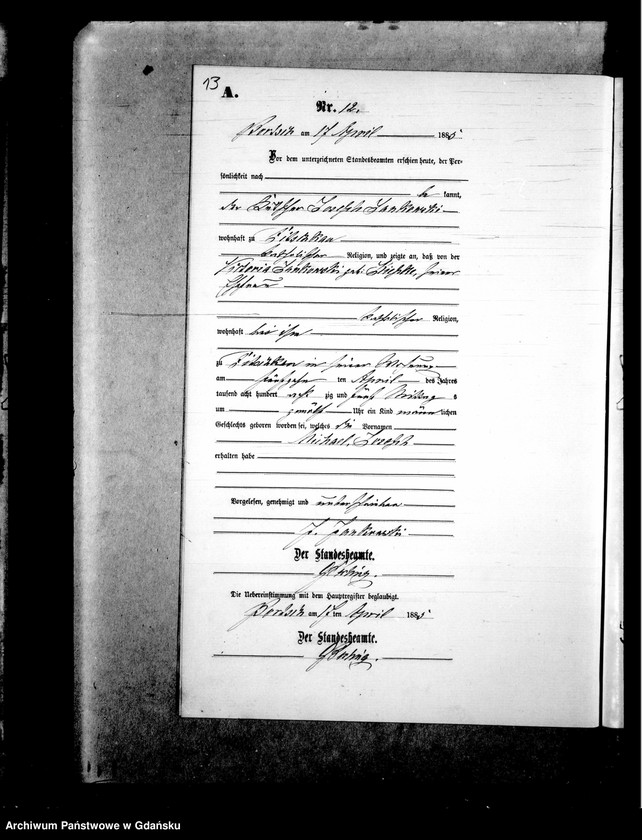 13
A.
Nr. 12.
am 17 April 1885
Vor dem unterzeichneten Standesbeamten erschien heute, der Per-
sönlichkeit nach
be kannt,
der Joseph Jankowski
wohnhaft zu
katholischer Religion, und zeigte an, daß von der
Jankowski geb. seiner
Ehefrau
katholischer Religion,
wohnhaft bei ihm
zu in seiner Wohnung
am fünfzehn ten April des Jahres
tausend acht hundert acht zig und fünf Mittags
um zwölf Uhr ein Kind männ lichen
Geschlechts geboren worden sei, welches die Vornamen
Michael, Joseph
erhalten habe
Vorgelesen, genehmigt und unterschrieben
J. Jankowski
Der Standesbeamte.
Die Uebereinstimmung mit dem Hauptregister beglaubigt.
am 17 ten April 1885
Der Standesbeamte.
Archiwum Państwowe w Gdańsku